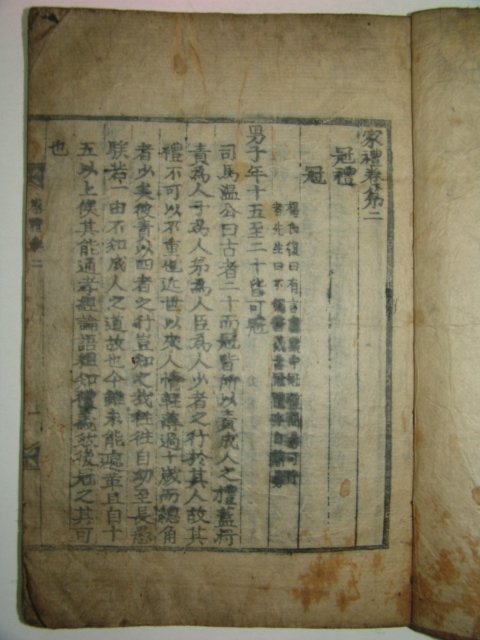 家禮卷第二
冠禮
冠
楊氏復曰有言
者先生曰不
男子年十五至二十皆可冠
司馬溫公曰古者二十而冠皆所以責成人之禮蓋將
責爲人子爲人弟爲人臣爲人少者之行於其人故其
禮不可以不重也近世以來人情輕薄過十歲而總角
者少矣彼責以四者之行豈知之哉往往自幼至長愚
騃若一由不知成人之道故也今雖未能遽革且自十
五以上俟其能通孝經論語粗知禮義然後冠之其可
也
家禮卷二